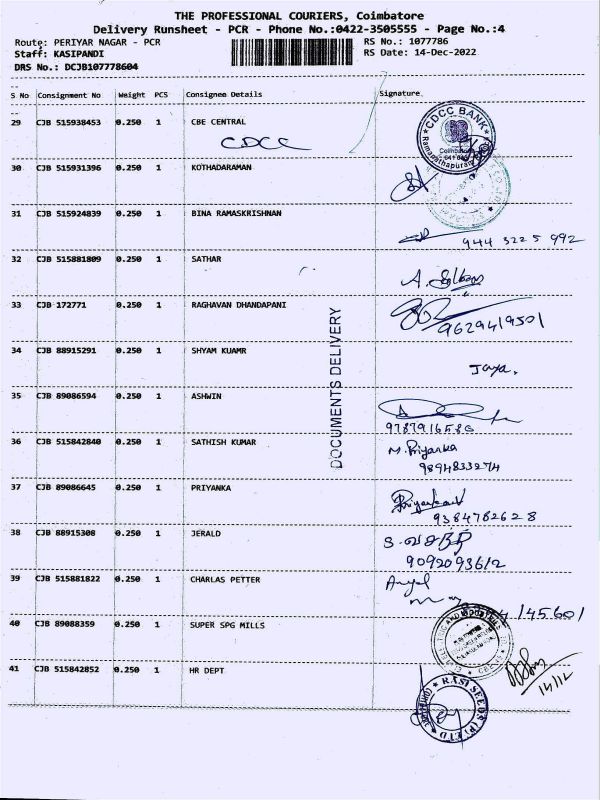 THE PROFESSIONAL COURIERS, Coimbatore
Delivery Runsheet - PCR - Phone No.:0422-3505555 - Page No.:4
Route: PERIYAR NAGAR - PCR
RS No.: 1077786
Staff: KASIPANDI
RS Date: 14-Dec-2022
DRS No.: DCJB107778604
S No Consignment No Weight PCS Consignee Details Signature
29 CJB 515938453 0.250 1 CBE CENTRAL
CDCC
CDCC BANK
Ramanathapuram
30 CJB 515931396 0.250 1 KOTHADARAMAN
31 CJB 515924839 0.250 1 BINA RAMASKRISHNAN
944 3225 992
32 CJB 515881809 0.250 1 SATHAR
33 CJB 172771 0.250 1 RAGHAVAN DHANDAPANI
9629419501
34 CJB 88915291 0.250 1 SHYAM KUAMR
Jaya.
35 CJB 89086594 0.250 1 ASHWIN
36 CJB 515842840 0.250 1 SATHISH KUMAR
M. Priyanka
9894833274
37 CJB 89086645 0.250 1 PRIYANKA
9384782628
38 CJB 88915308 0.250 1 JERALD
9092093612
39 CJB 515881822 0.250 1 CHARLAS PETTER
40 CJB 89088359 0.250 1 SUPER SPG MILLS
14/12
41 CJB 515842852 0.250 1 HR DEPT
RASI SEEDS (P) LTD
DOCUMENTS DELIVERY